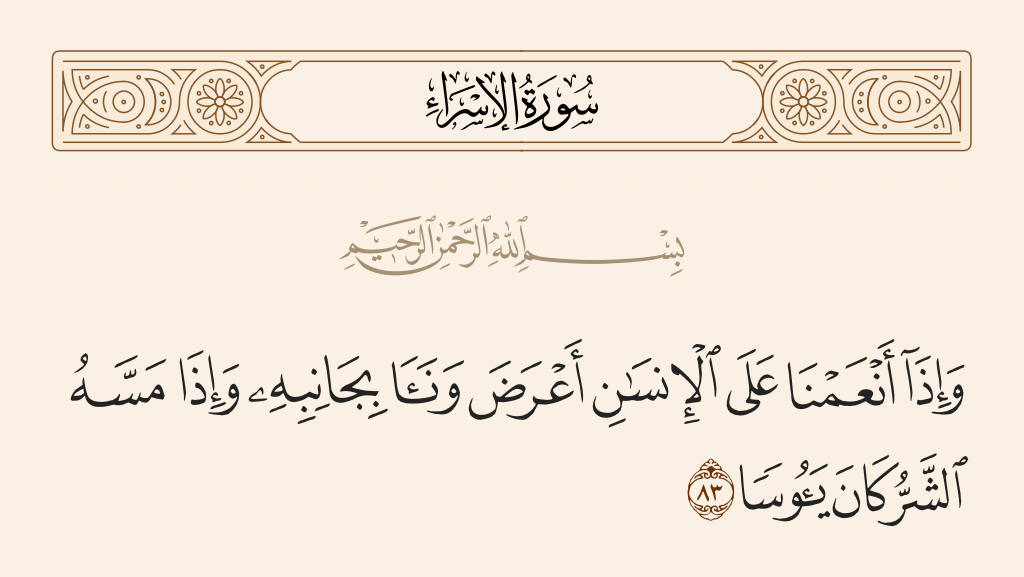 سُورَةُ الإِسْرَاءِ
بِسْمِ ٱللَّهِ ٱلرَّحْمَٰنِ ٱلرَّحِيمِ
وَإِذَآ أَنْعَمْنَا عَلَى ٱلْإِنسَـٰنِ أَعْرَضَ وَنَـَٔا بِجَانِبِهِۦ وَإِذَا مَسَّـهُ
ٱلشَّرُّ كَانَ يَـُٔوسًا ٨٣